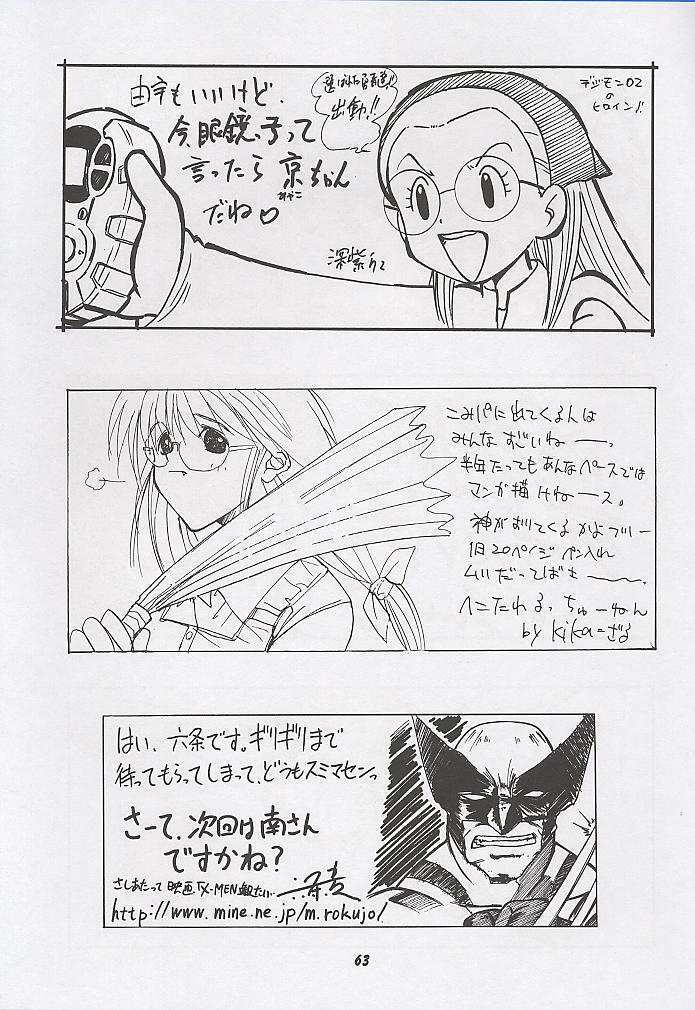 由宇もいいけど、
今眼鏡っ子って
言ったら京ちゃん
みやこ
だね
選ばれし
出動!!
デジモン02
の
ヒロイン!!
深紫
こみパに出てくる人は
みんなすごいねー。
半年たってもあんなペースでは
マンガ描けねース。
神がおりてくるかよフツー
1日20ページペン入れ
ムリだってばもー。
へこたれるっちゅーねん
by kikaーざる
はい、六条です。ギリギリまで
待ってもらってしまって、どうもスミマセンっ
さーて、次回は南さん
ですかね?
さしあたって映画「X-MEN観たい…
http://www.mine.ne.jp/m.rokujo/
63